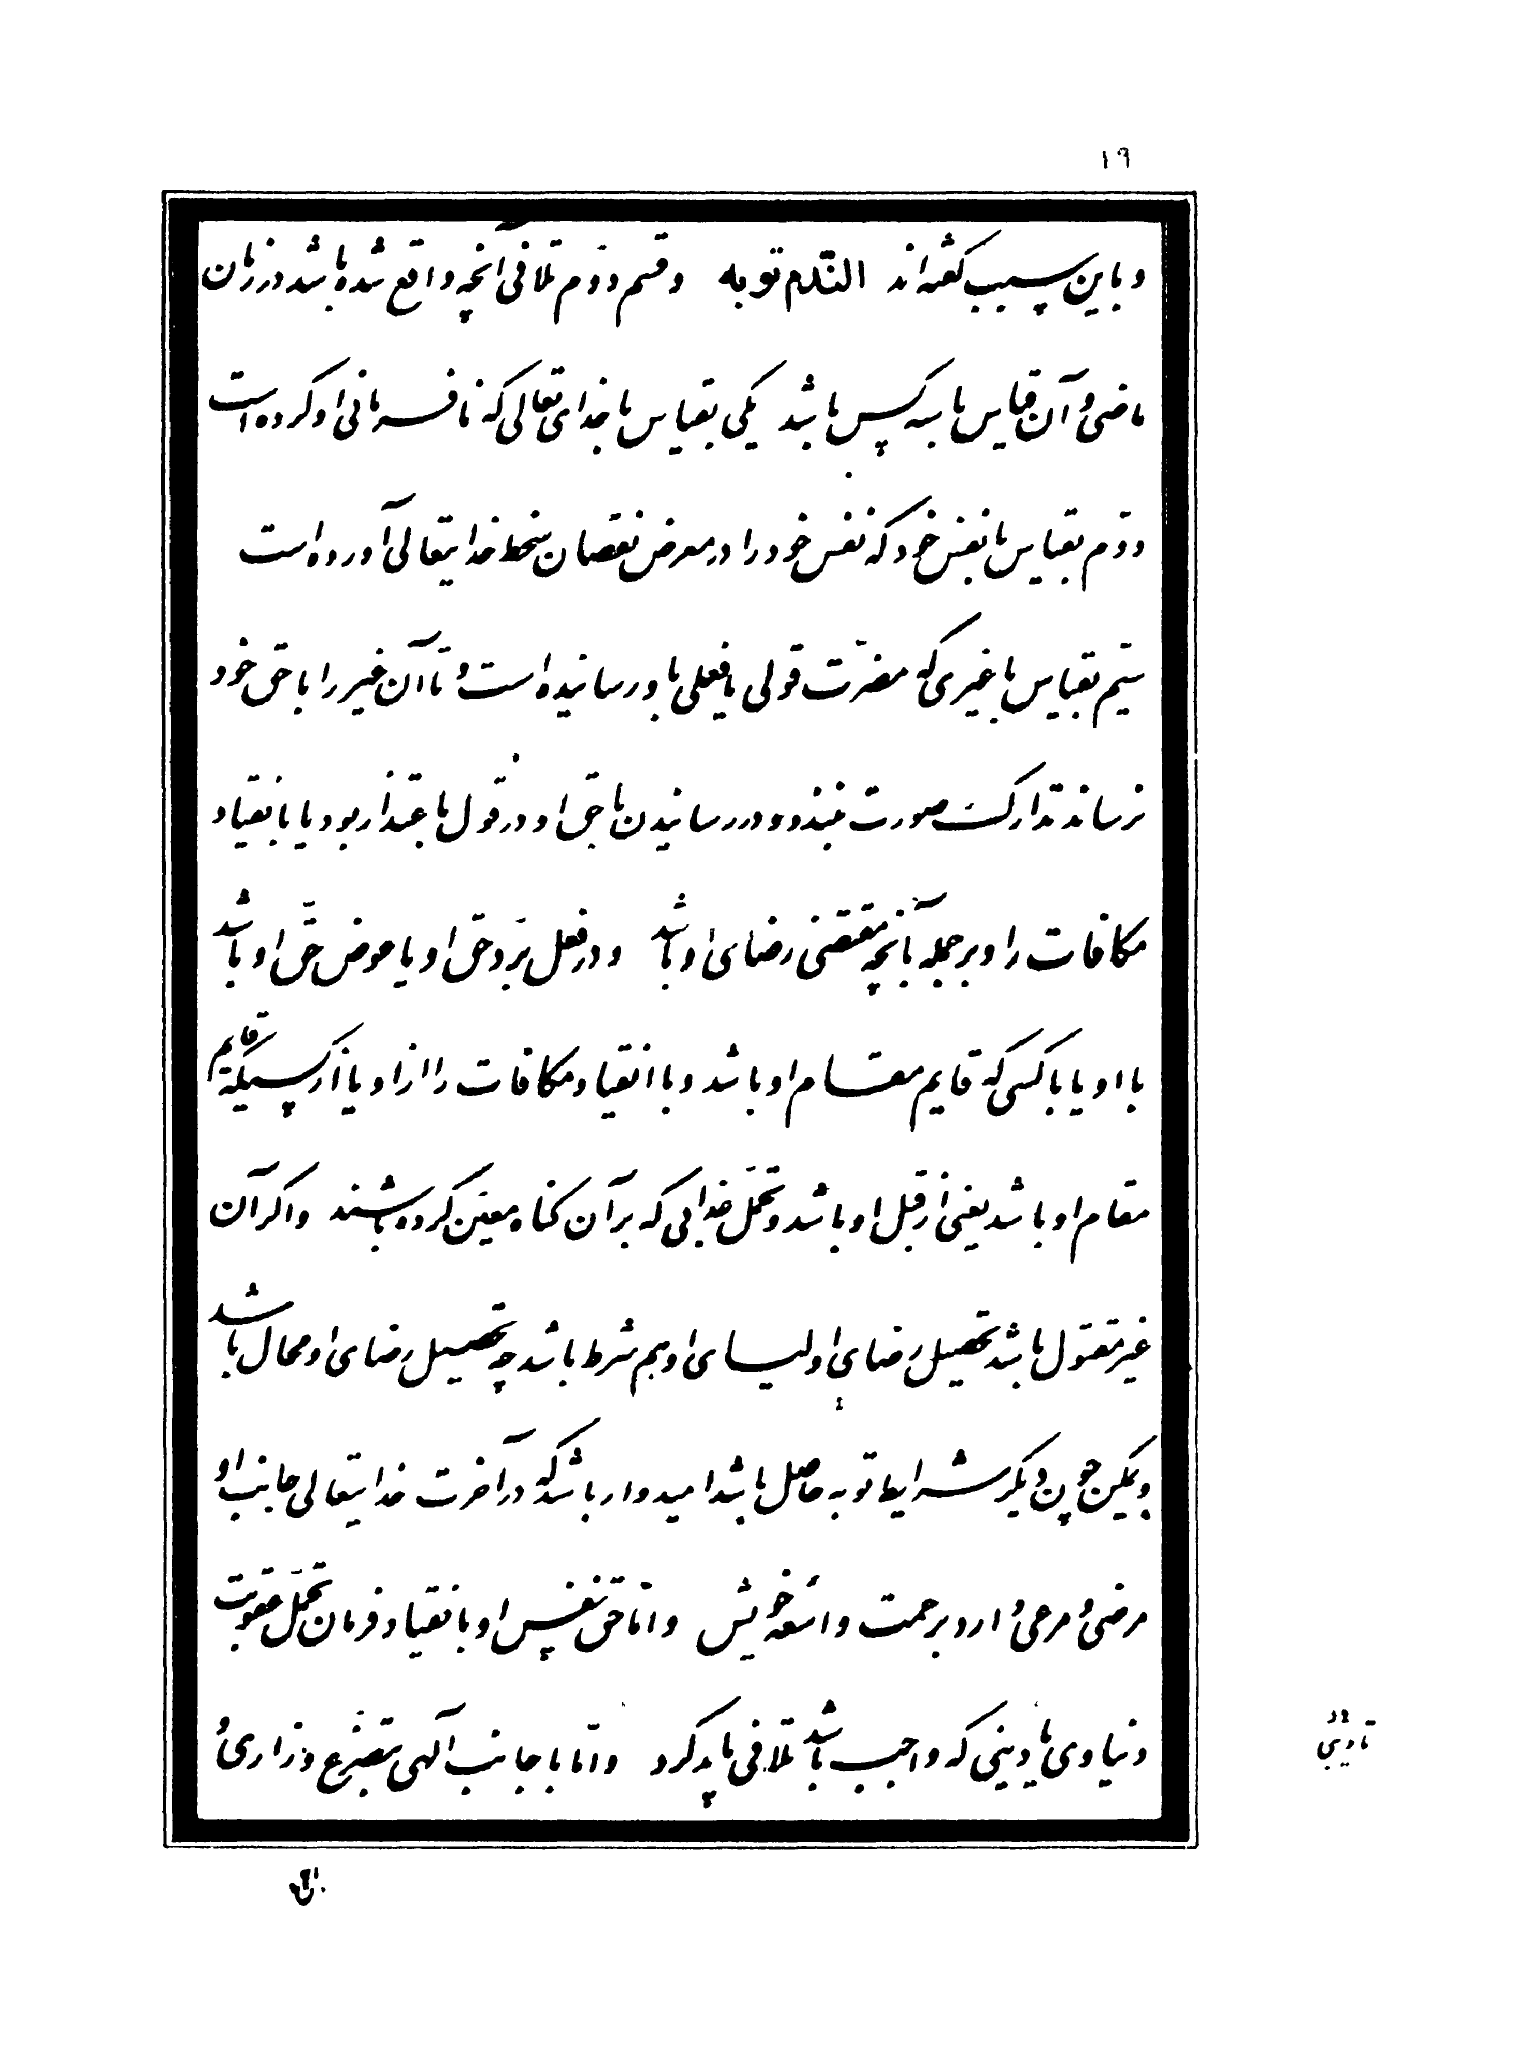 ۱۹
و باین سبب گفته‌اند الندم توبه و قسم دوّم تلافی آنچه واقع شده باشد در زمان
ماضی و آن قیاس با سه کس باشد یکی بقیاس با خدای تعالی که نافرمانی او کرده است
دوّم بقیاس با نفس خود که نفس خود را در معرض نقصان سخط خدایتعالی آورده است
سیّم بقیاس با غیری که مضرّت قولی یا فعلی باو رسانیده است و تا آن غیر را با حق خود
نرساند تدارک صورت نبندد و در رسانیدن با حق او در قول باعتذار بود یا بانقیاد
مکافات را و بر جمله بآنچه مقتضی رضای او باشد و در فعل بردّ حق او یا عوض حقّ او باشد
با او یا با کسی که قایم مقام او باشد و با انقیاد مکافات را از او یا از کسیکه قایم
مقام او باشد یعنی از قبل او باشد و تحمّل عذابی که بر آن گناه معین کرده باشند و اگر آن
غیر مقتول باشد تحصیل رضای اولیای او هم شرط باشد چه تحصیل رضای او محال باشد
ولیکن چون دیگر شرایط توبه حاصل باشد امیدوار باشد که در آخرت خدایتعالی جانب او
مرضی و مرعی دارد برحمت واسعه خویش و امّا حق نفس او بانقیاد فرمان تحمّل عقوبت
دنیاوی یا دینی که واجب باشد تلافی باید کرد و امّا با جانب آلهی بتضرّع و زاری و
تادیبی